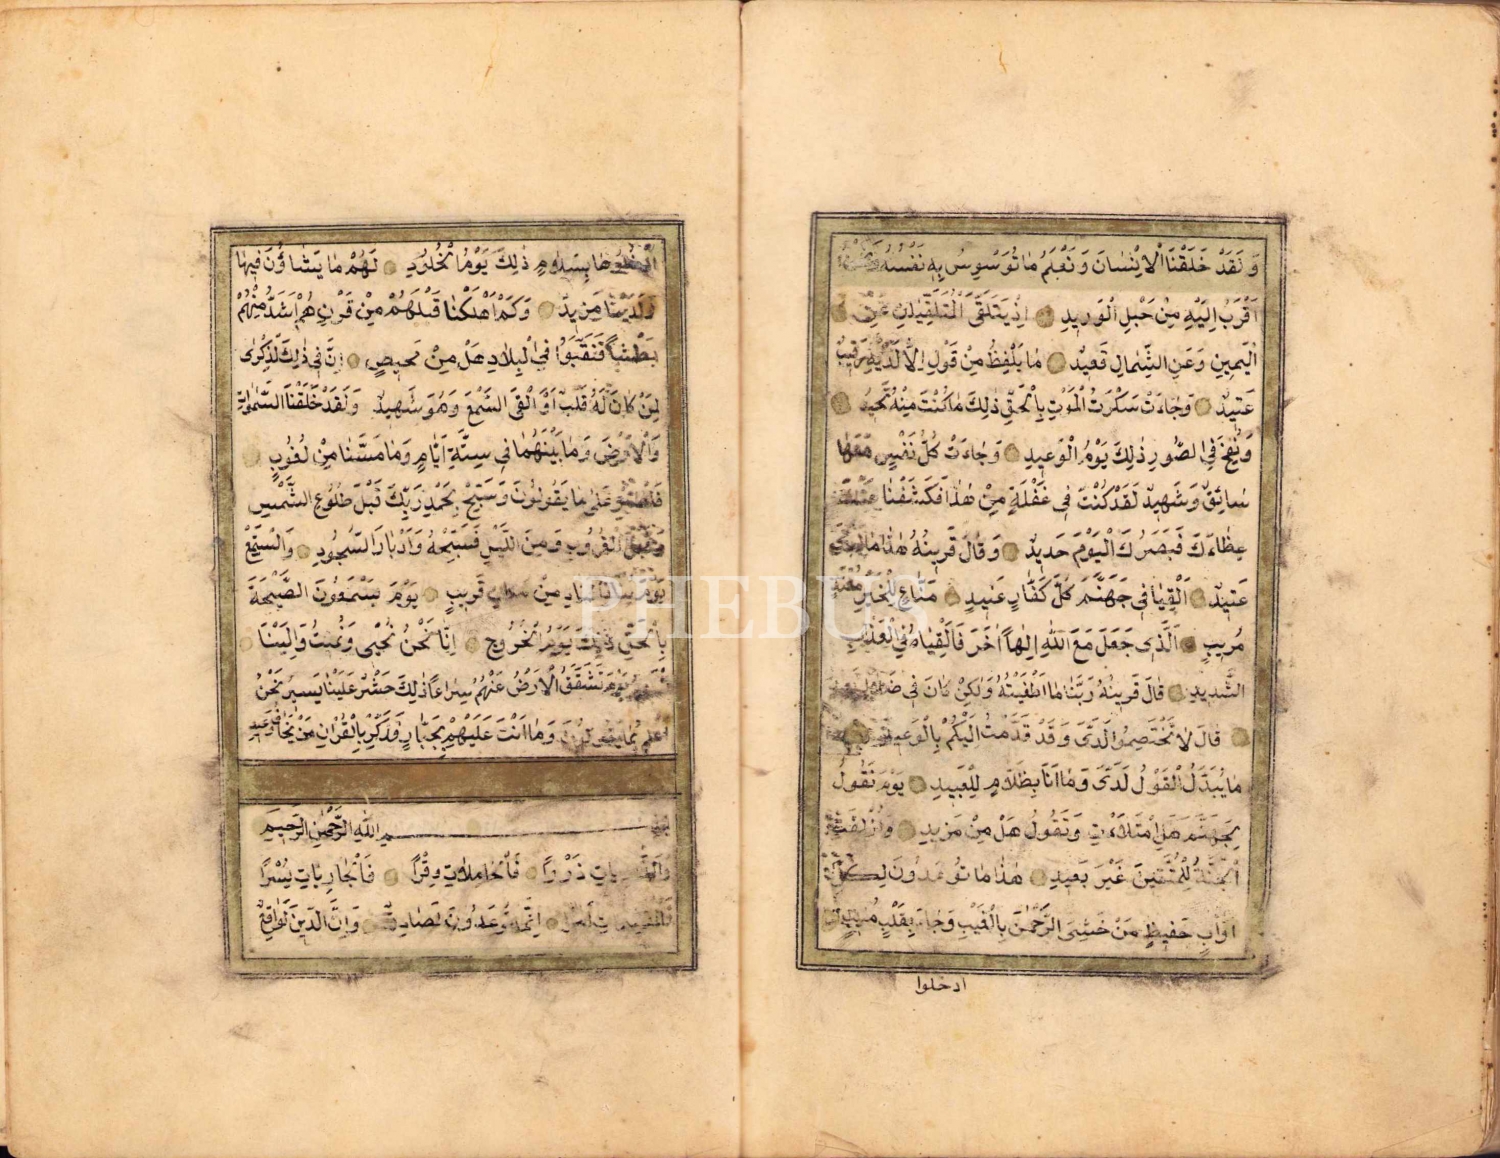 وَلَقَدْ خَلَقْنَا الْاِنْسَانَ وَنَعْلَمُ مَا تُوَسْوِسُ بِهٖ نَفْسُهُ وَنَحْنُ
اَقْرَبُ اِلَيْهِ مِنْ حَبْلِ الْوَرِيدِ اِذْ يَتَلَقَّى الْمُتَلَقِّيَانِ عَنِ
الْيَمِينِ وَعَنِ الشِّمَالِ قَعِيدٌ مَا يَلْفِظُ مِنْ قَوْلٍ اِلَّا لَدَيْهِ رَقِيبٌ
عَتِيدٌ وَجَاءَتْ سَكْرَتُ الْمَوْتِ بِالْحَقِّ ذٰلِكَ مَا كُنْتَ مِنْهُ تَحِيدُ
وَنُفِخَ فِي الصُّورِ ذٰلِكَ يَوْمُ الْوَعِيدِ وَجَاءَتْ كُلُّ نَفْسٍ مَعَهَا
سَائِقٌ وَشَهِيدٌ لَقَدْ كُنْتَ فِي غَفْلَةٍ مِنْ هٰذَا فَكَشَفْنَا عَنْكَ
غِطَاءَكَ فَبَصَرُكَ الْيَوْمَ حَدِيدٌ وَقَالَ قَرِينُهُ هٰذَا مَا لَدَىَّ
عَتِيدٌ اَلْقِيَا فِي جَهَنَّمَ كُلَّ كَفَّارٍ عَنِيدٍ مَنَّاعٍ لِلْخَيْرِ مُعْتَدٍ
مُرِيبٍ اَلَّذِي جَعَلَ مَعَ اللّٰهِ اِلٰهًا اٰخَرَ فَاَلْقِيَاهُ فِي الْعَذَابِ
الشَّدِيدِ قَالَ قَرِينُهُ رَبَّنَا مَا اَطْغَيْتُهُ وَلٰكِنْ كَانَ فِي ضَلَالٍ بَعِيدٍ
قَالَ لَا تَخْتَصِمُوا لَدَىَّ وَقَدْ قَدَّمْتُ اِلَيْكُمْ بِالْوَعِيدِ
مَا يُبَدَّلُ الْقَوْلُ لَدَىَّ وَمَا اَنَا بِظَلَّامٍ لِلْعَبِيدِ يَوْمَ نَقُولُ
لِجَهَنَّمَ هَلِ امْتَلَاْتِ وَتَقُولُ هَلْ مِنْ مَزِيدٍ وَاُزْلِفَتِ
الْجَنَّةُ لِلْمُتَّقِينَ غَيْرَ بَعِيدٍ هٰذَا مَا تُوعَدُونَ لِكُلِّ
اَوَّابٍ حَفِيظٍ مَنْ خَشِىَ الرَّحْمٰنَ بِالْغَيْبِ وَجَاءَ بِقَلْبٍ مُنِيبٍ
ادخلوا
اُدْخُلُوهَا بِسَلَامٍ ذٰلِكَ يَوْمُ الْخُلُودِ لَهُمْ مَا يَشَاؤُنَ فِيهَا
وَلَدَيْنَا مَزِيدٌ وَكَمْ اَهْلَكْنَا قَبْلَهُمْ مِنْ قَرْنٍ هُمْ اَشَدُّ مِنْهُمْ
بَطْشًا فَنَقَّبُوا فِي الْبِلَادِ هَلْ مِنْ مَحِيصٍ اِنَّ فِي ذٰلِكَ لَذِكْرٰى
لِمَنْ كَانَ لَهُ قَلْبٌ اَوْ اَلْقَى السَّمْعَ وَهُوَ شَهِيدٌ وَلَقَدْ خَلَقْنَا السَّمٰوَاتِ
وَالْاَرْضَ وَمَا بَيْنَهُمَا فِي سِتَّةِ اَيَّامٍ وَمَا مَسَّنَا مِنْ لُغُوبٍ
فَاصْبِرْ عَلٰى مَا يَقُولُونَ وَسَبِّحْ بِحَمْدِ رَبِّكَ قَبْلَ طُلُوعِ الشَّمْسِ
وَقَبْلَ الْغُرُوبِ وَمِنَ اللَّيْلِ فَسَبِّحْهُ وَاَدْبَارَ السُّجُودِ وَاسْتَمِعْ
يَوْمَ يُنَادِ الْمُنَادِ مِنْ مَكَانٍ قَرِيبٍ يَوْمَ يَسْمَعُونَ الصَّيْحَةَ
بِالْحَقِّ ذٰلِكَ يَوْمُ الْخُرُوجِ اِنَّا نَحْنُ نُحْيِى وَنُمِيتُ وَاِلَيْنَا
الْمَصِيرُ يَوْمَ تَشَقَّقُ الْاَرْضُ عَنْهُمْ سِرَاعًا ذٰلِكَ حَشْرٌ عَلَيْنَا يَسِيرٌ نَحْنُ
اَعْلَمُ بِمَا يَقُولُونَ وَمَا اَنْتَ عَلَيْهِمْ بِجَبَّارٍ فَذَكِّرْ بِالْقُرْاٰنِ مَنْ يَخَافُ وَعِيدِ
بِسْمِ اللّٰهِ الرَّحْمٰنِ الرَّحِيمِ
وَالذَّارِيَاتِ ذَرْوًا فَالْحَامِلَاتِ وِقْرًا فَالْجَارِيَاتِ يُسْرًا
فَالْمُقَسِّمَاتِ اَمْرًا اِنَّمَا تُوعَدُونَ لَصَادِقٌ وَاِنَّ الدِّينَ لَوَاقِعٌ
PHEBUS